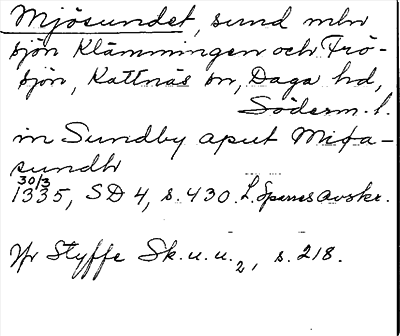 Mjösundet, sund mln
sjön Klämmingen och Frö-
sjön, Kattnäs sn, Daga hd,
Söderm. l.
in Sundby aput Mitha-
sundh
30/3
1335, SD 4, s. 430. L. Sparres avskr.
Jfr Styffe Sk. u. u. 2, s. 218.